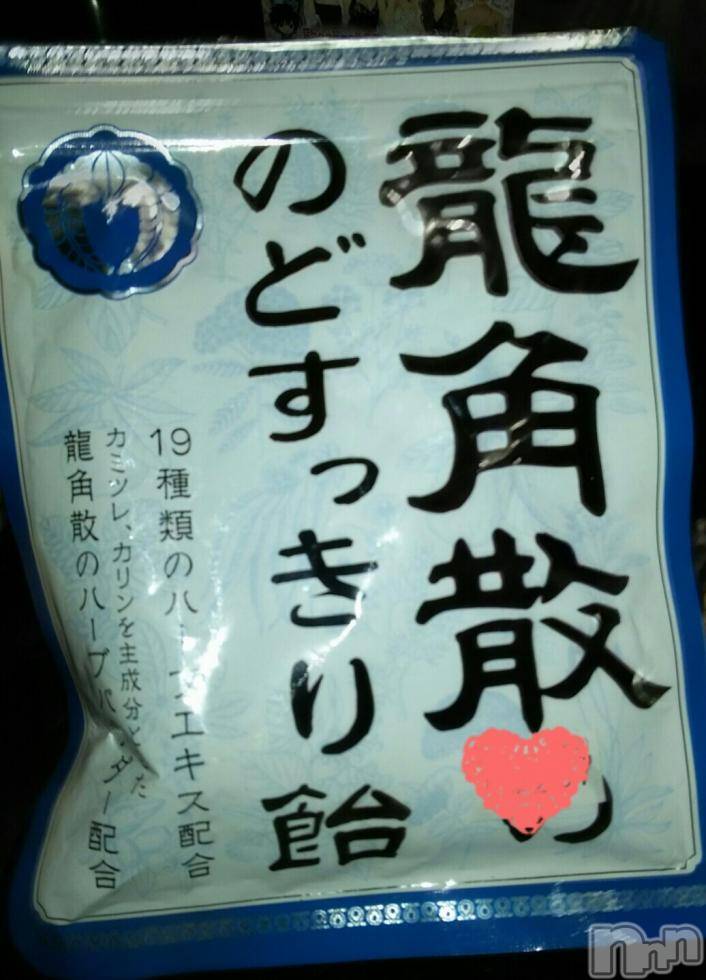 龍角散
のどすっきり飴
19種類のハーブエキス配合
カミツレ、カリンを主成分とした
龍角散のハーブパウダー配合
nnn